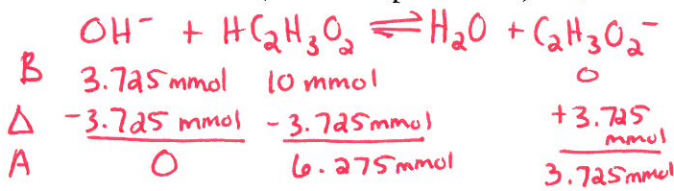 OH⁻ + HC₂H₃O₂ ⇌ H₂O + C₂H₃O₂⁻
B 3.725 mmol 10 mmol 0
Δ -3.725 mmol - 3.725 mmol +3.725 mmol
A 0 6.275 mmol 3.725 mmol